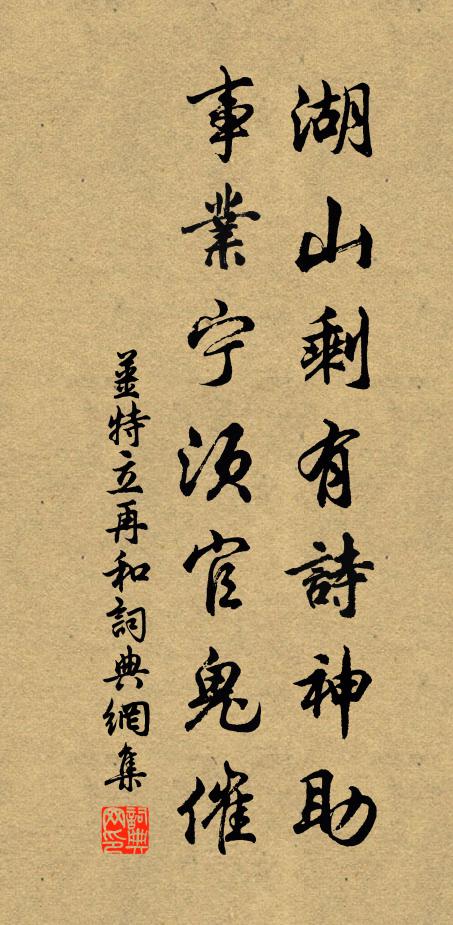 湖山剩有詩神助
事業宁須官鬼催
姜特立再和詞典網集
詞典网印